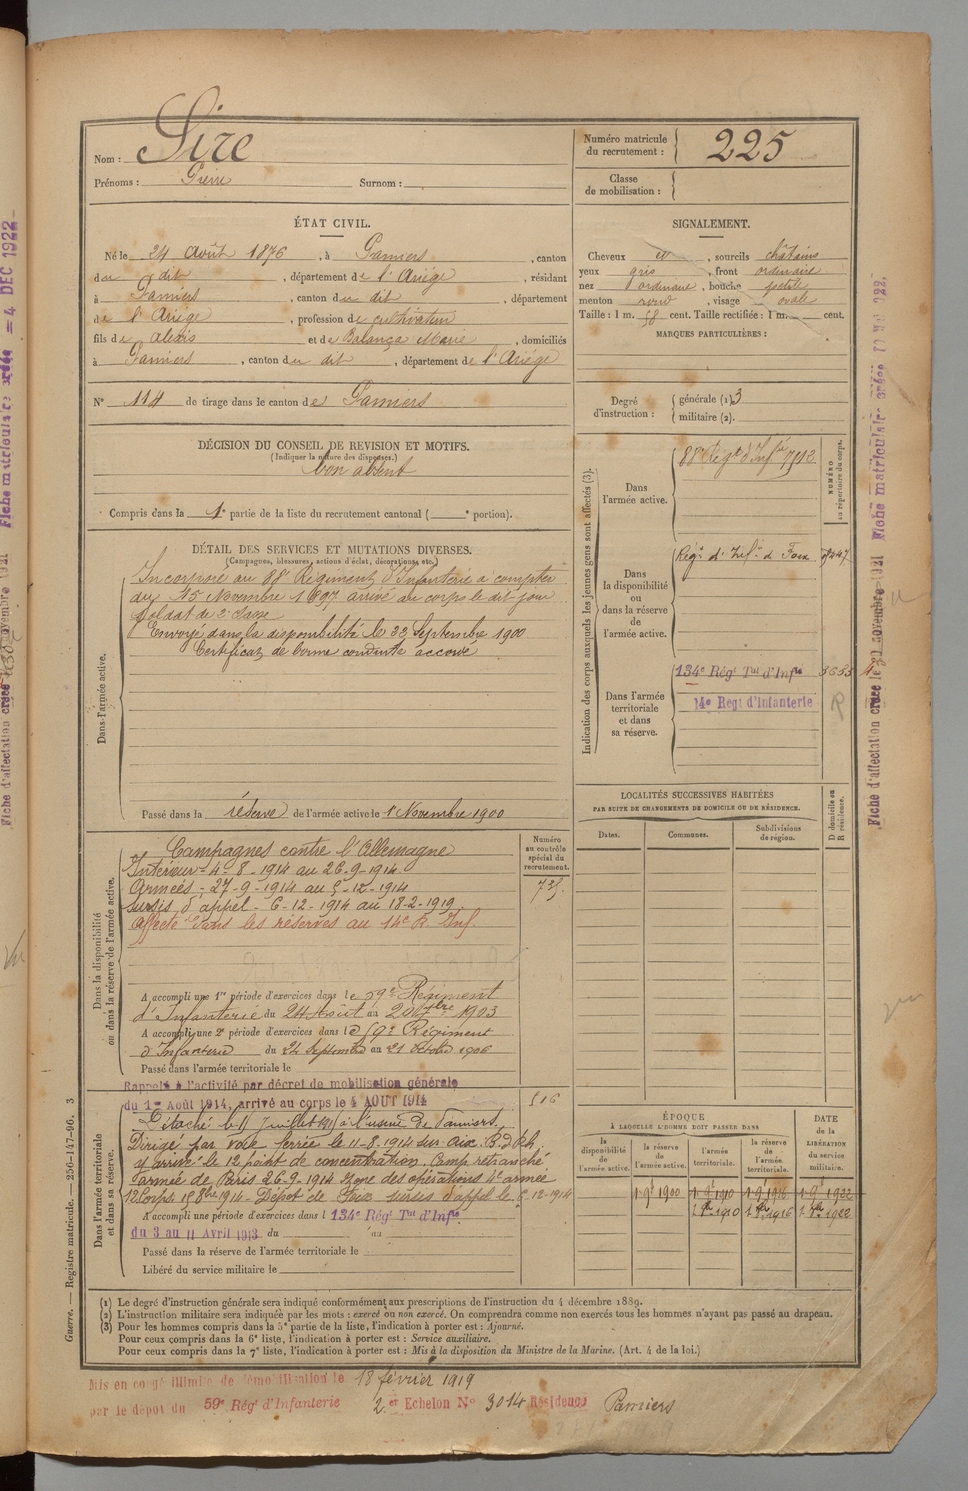 Nom : Sire
Prénoms : Pierre Surnom :
Numéro matricule du recrutement : 225
Classe de mobilisation :
ÉTAT CIVIL.
Né le 24 Août 1876, à Pamiers, canton
du dit, département de l'Ariège, résidant
à Pamiers, canton du dit, département
de l'Ariège, profession de cultivateur
fils de Alexis et de Balança Marie, domiciliés
à Pamiers, canton du dit, département de l'Ariège
N° 114 de tirage dans le canton de Pamiers
SIGNALEMENT.
Cheveux et, sourcils châtains
yeux gris, front ordinaire
nez ordinaire, bouche petite
menton rond, visage ovale
Taille : 1 m. 58 cent. Taille rectifiée : 1 m. cent.
MARQUES PARTICULIÈRES :
Degré d'instruction : générale (1) 3
militaire (2).
DÉCISION DU CONSEIL DE REVISION ET MOTIFS.
(Indiquer la nature des dispenses.)
bon absent
Compris dans la 1e partie de la liste du recrutement cantonal ( e portion).
DÉTAIL DES SERVICES ET MUTATIONS DIVERSES.
(Campagnes, blessures, actions d'éclat, décorations, etc.)
Dans l'armée active.
Incorporé au 88e Régiment d'Infanterie à compter
du 15 Novembre 1897 arrivé au corps le dit jour
soldat de 2e classe
Envoyé dans la disponibilité le 22 Septembre 1900
Certificat de bonne conduite accordé
Passé dans la réserve de l'armée active le 1 Novembre 1900
Indication des corps auxquels les jeunes gens sont affectés (3).
NUMÉRO au répertoire du corps.
Dans l'armée active.
88e Régt d'Infie
Dans la disponibilité ou dans la réserve de l'armée active.
Régt d'Infie de Foix
Dans l'armée territoriale et dans sa réserve.
134e Régt Tal d'Infie
14e Regt d'Infanterie
R
LOCALITÉS SUCCESSIVES HABITÉES
PAR SUITE DE CHANGEMENTS DE DOMICILE OU DE RÉSIDENCE.
D domicile ou R résidence.
Dates. Communes. Subdivisions de région.
Dans la disponibilité ou dans la réserve de l'armée active.
Numéro au contrôle spécial du recrutement.
Campagnes contre l'Allemagne
Intérieur : 4-8-1914 au 26-9-1914
Armées : 27-9-1914 au 5-12-1914
sursis d'appel - 6-12-1914 au 18-2-1919
Affecté dans les réserves au 14e R. Inf.
A accompli une 1re période d'exercices dans le 59e Régiment
d'Infanterie du 24 Août au 1903
A accompli une 2e période d'exercices dans le 59e Régiment
d'Infanterie du 24 Septembre au 21 Octobre 1906
Passé dans l'armée territoriale le
Rappelé à l'activité par décret de mobilisation générale
du 1er Août 1914, arrivé au corps le 4 AOUT 1914
Dans l'armée territoriale et dans sa réserve.
Détaché le Juillet à l'usine de Pamiers.
Dirigé par voie ferrée le 11-8-1914 sur
y arrive le 12 point de concentration. Camp retranché
armée de Paris 26-9-1914 Zone des opérations 4e armée
12 Corps 1914 - Dépôt de Foix sursis d'appel le 6-12-1914
A accompli une période d'exercices dans l 134e Régt Tal d'Infie
du 3 au 11 Avril 1913 du au
Passé dans la réserve de l'armée territoriale le
Libéré du service militaire le
ÉPOQUE
À LAQUELLE L'HOMME DOIT PASSER DANS
DATE de la LIBÉRATION du service militaire.
la disponibilité de l'armée active.
la réserve de l'armée active.
l'armée territoriale.
la réserve de l'armée territoriale.
1.9e 1900 1.9e 1910 1.9e 1916 1.9e 1922
1910 1916 1922
(1) Le degré d'instruction générale sera indiqué conformément aux prescriptions de l'instruction du 4 décembre 1889.
(2) L'instruction militaire sera indiquée par les mots : exercé ou non exercé. On comprendra comme non exercés tous les hommes n'ayant pas passé au drapeau.
(3) Pour les hommes compris dans la 5e partie de la liste, l'indication à porter est : Ajourné.
Pour ceux compris dans la 6e liste, l'indication à porter est : Service auxiliaire.
Pour ceux compris dans la 7e liste, l'indication à porter est : Mis à la disposition du Ministre de la Marine. (Art. 4 de la loi.)
Mis en congé illimité de démobilisation le 18 février 1919
par le dépôt du 59e Régt d'Infanterie 2er Echelon N° 3014 Résidence Pamiers
Guerre. — Registre matricule. — 256-147-96. 3
Fiche d'affectation créée le 30 novembre 1921 Fiche matriculaire créée
Fiche d'affectation créée novembre 1921 Fiche matriculaire créée = 4 DEC 1922